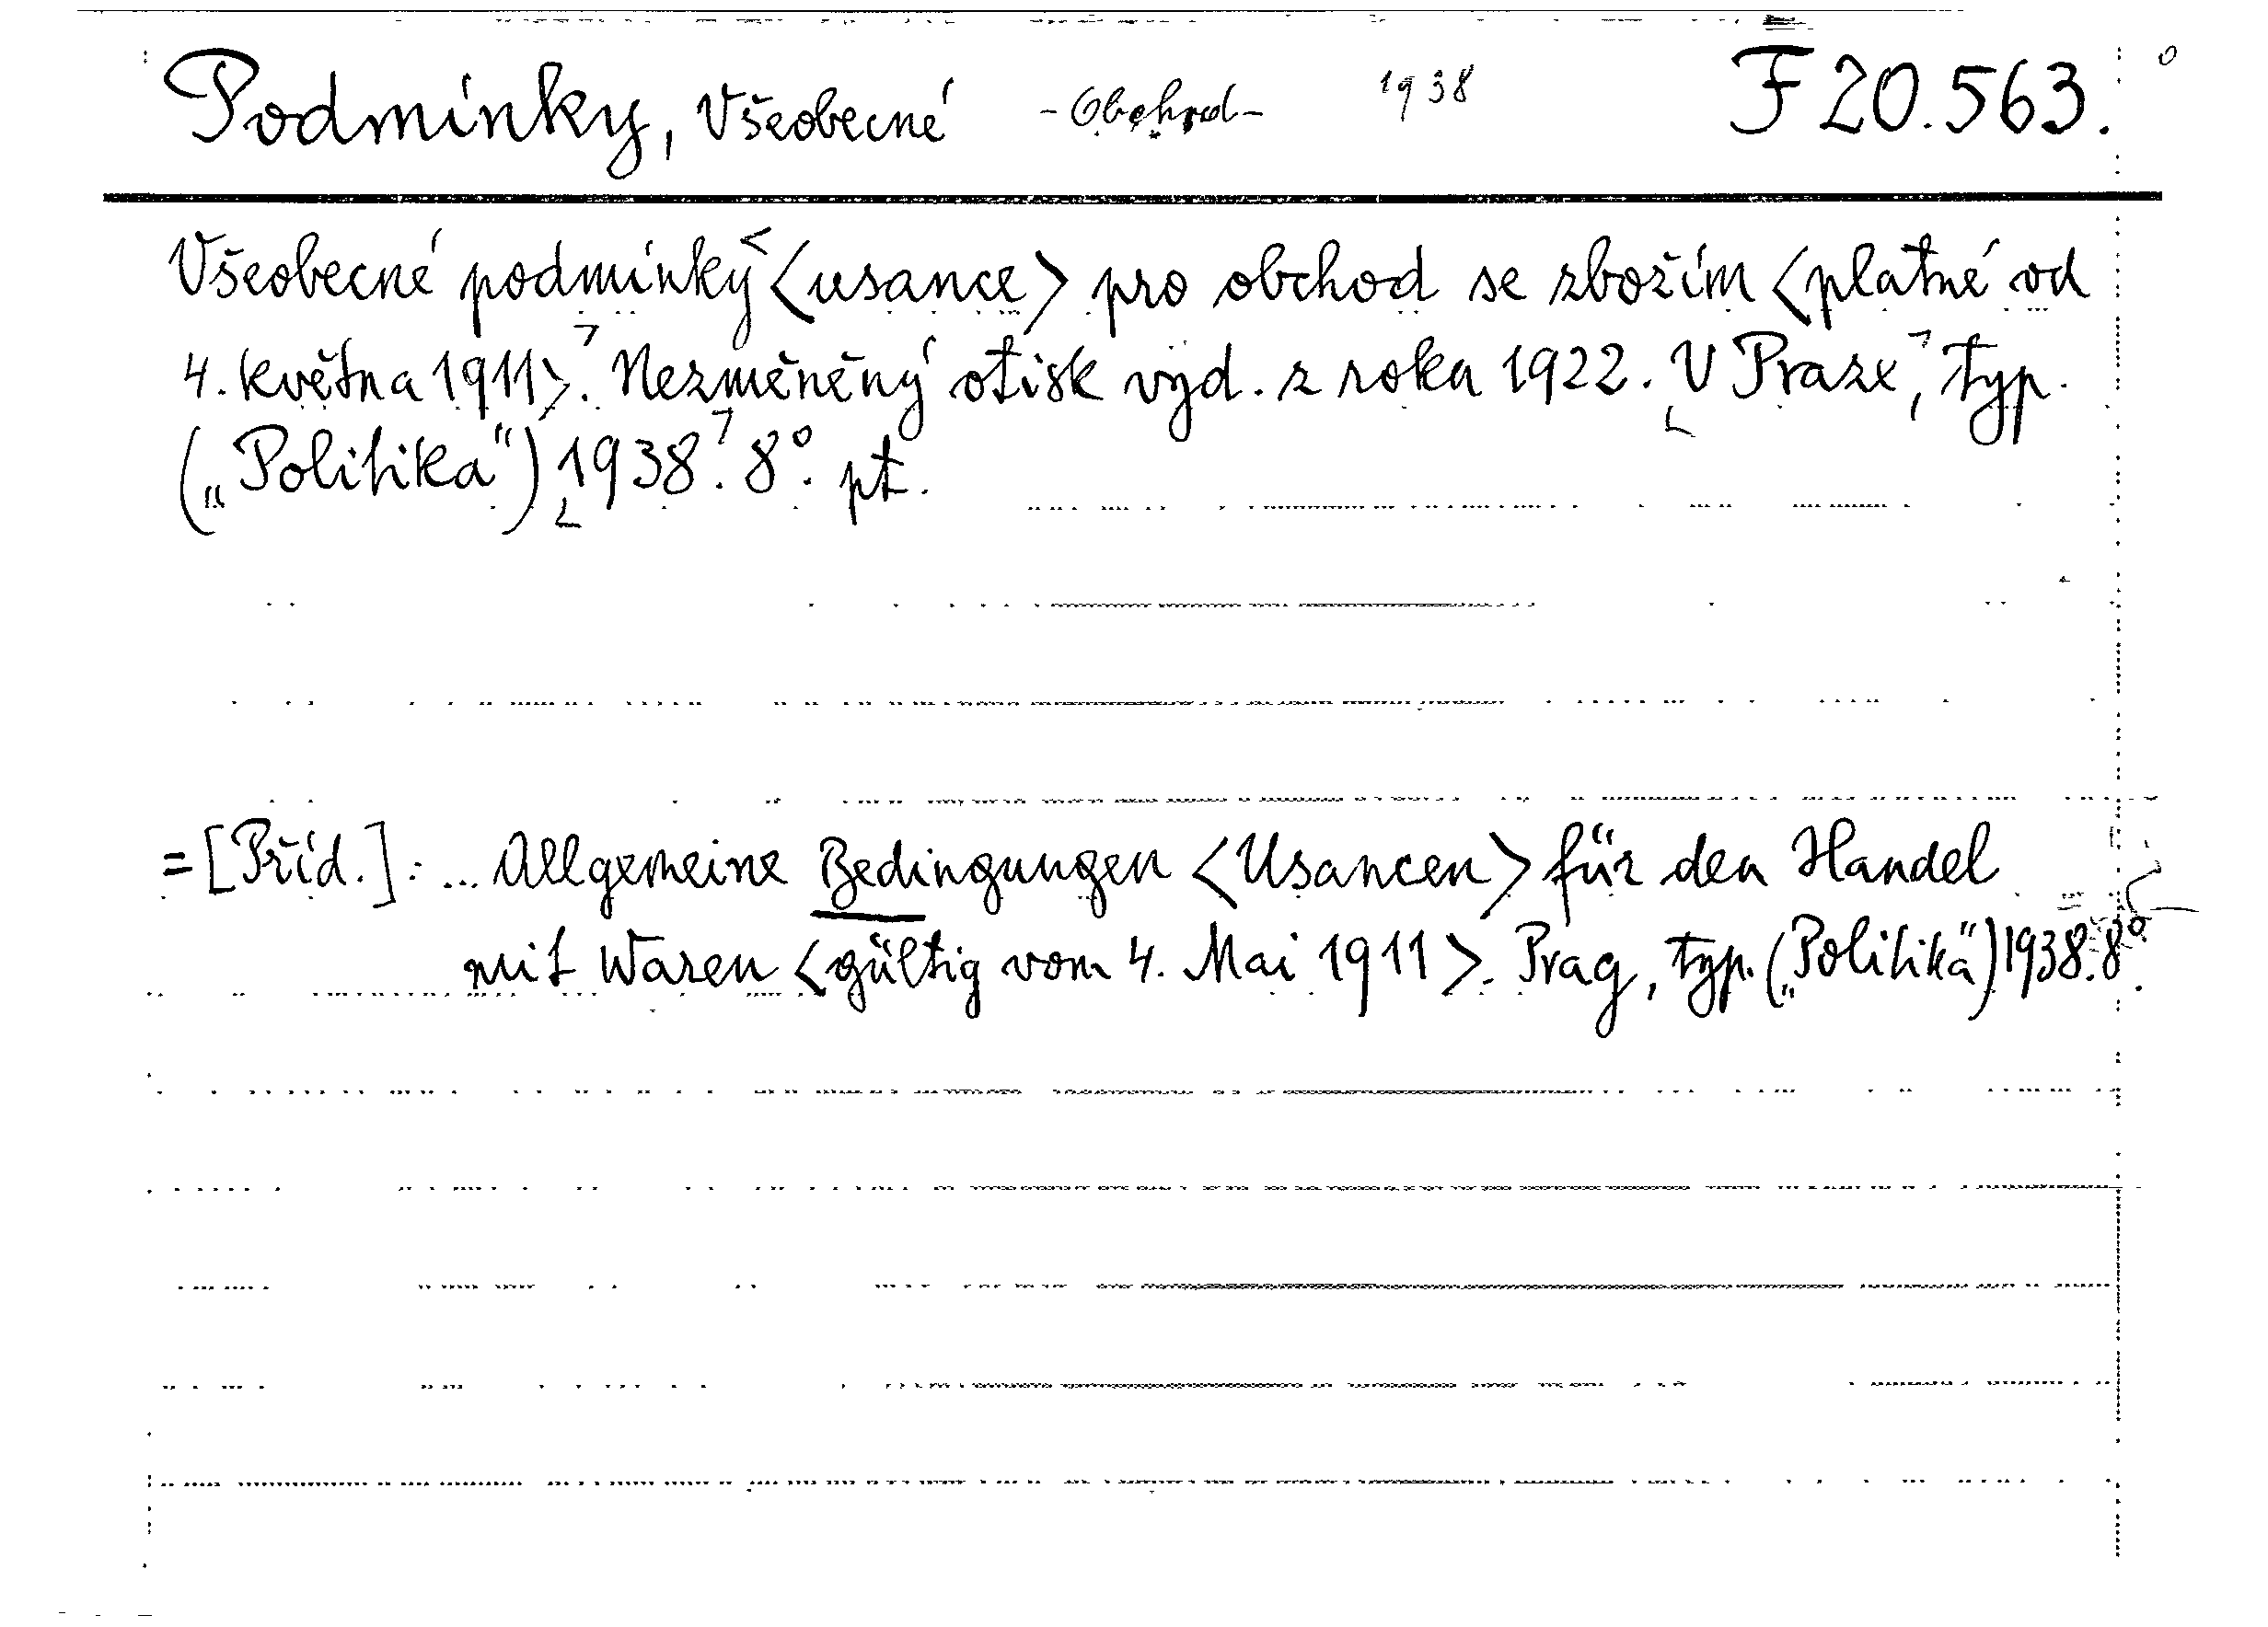 Podmínky, Všeobecné - Obchod - 1938 F 20.563.
Všeobecné podmínky <usance> pro obchod se zbožím <platné od
4. května 1911>. Nezměněný otisk vyd. z roku 1922. V Praze, typ.
(„Politika“) 1938. 8°. pt.
= [Příd.]: ... Allgemeine Bedingungen <Usancen> für den Handel
mit Waren <gültig vom 4. Mai 1911>. Prag, typ. („Politika“) 1938. 8°.